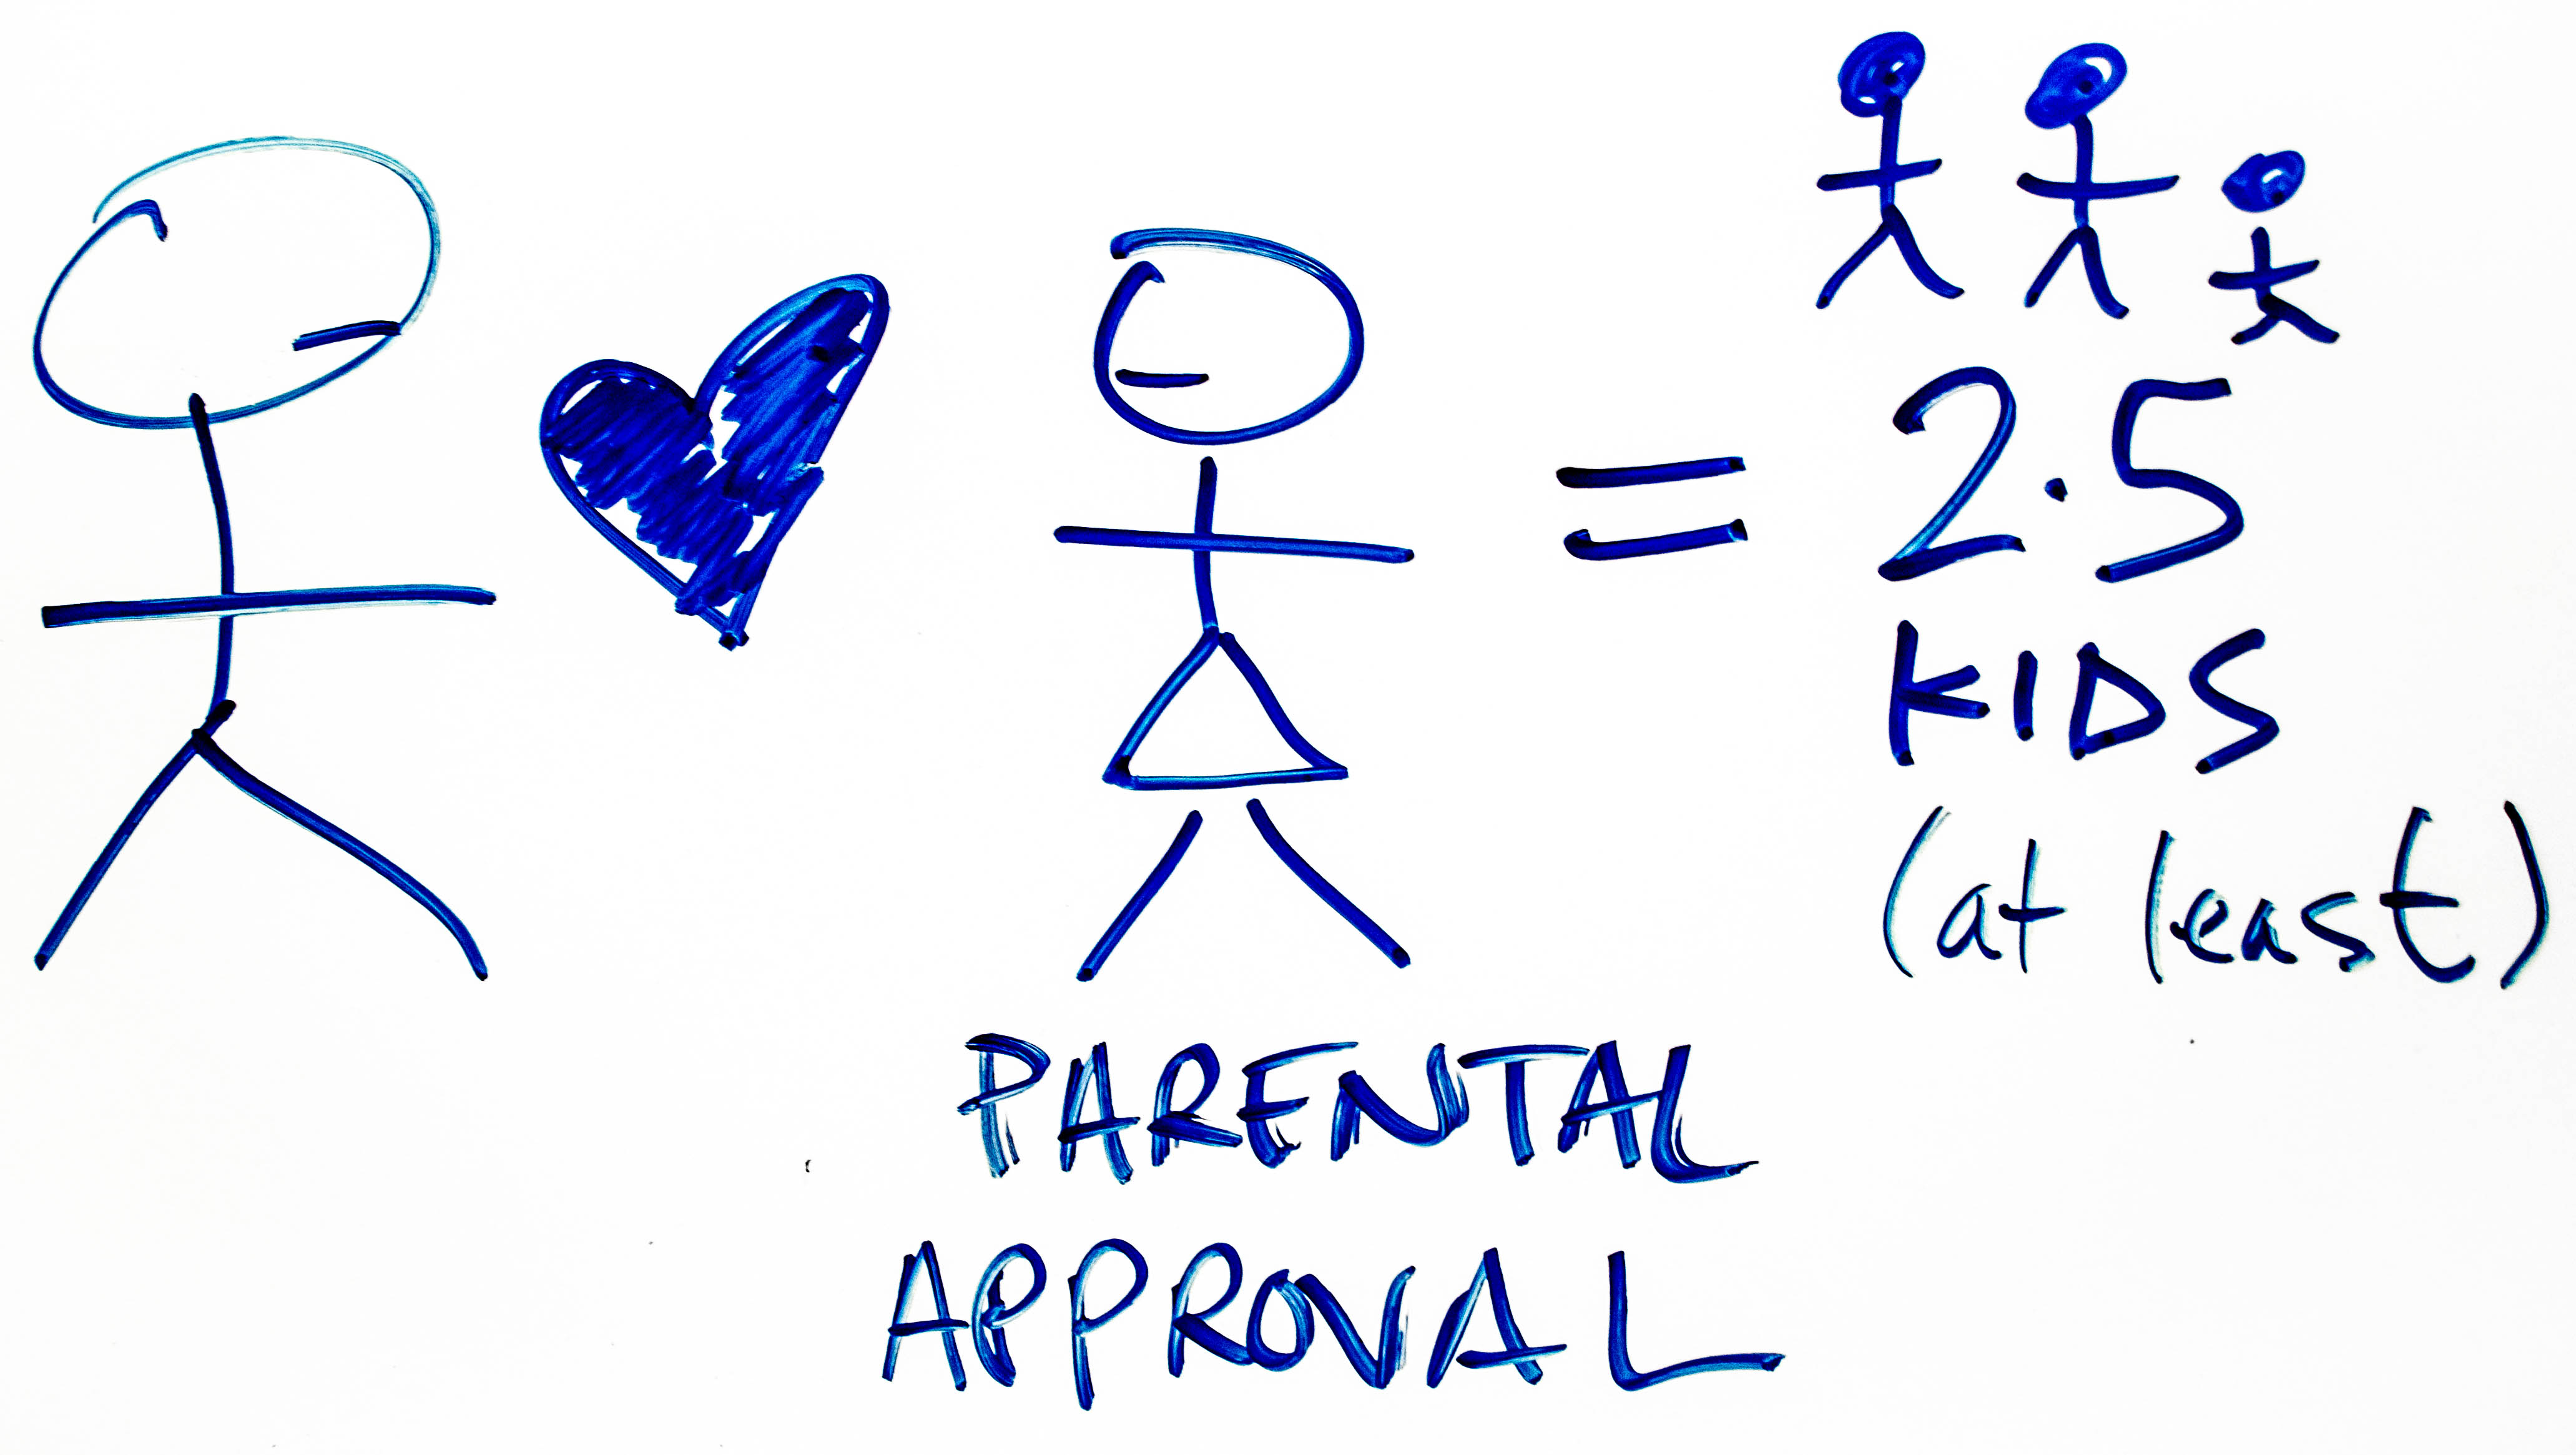 = 2.5
KIDS
(at least)
PARENTAL
APPROVAL